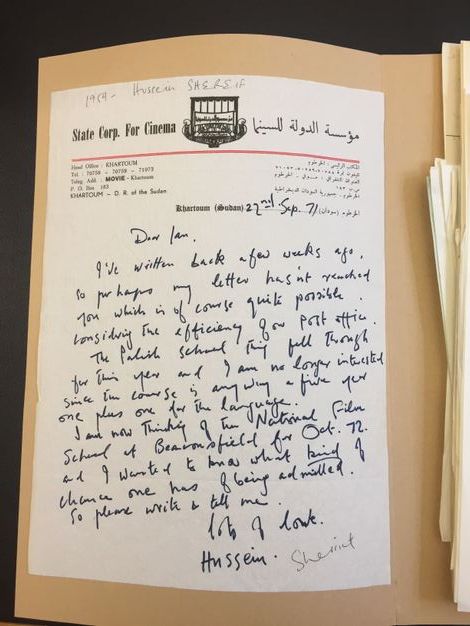 1954- Hussein SHEREIF
State Corp. For Cinema
مؤسسة الدولة للسينما
Head Office : KHARTOUM
Tel. : 70759 - 70759 - 71973
Teleg Add. : MOVIE - Khartoum
P. O. Box 183
KHARTOUM - D. R. of the Sudan
المكتب الرئيسي : الخرطوم
الخرطوم - جمهورية السودان الديمقراطية
Khartoum (Sudan) 22nd Sep. 71 الخرطوم (سودان)
Dear Ian.
I've written back a few weeks ago.
So perhaps my letter hasn't reached
you which is of course quite possible.
considering the efficiency of our Post office.
The Polish School thing fell through
for this year and I am no longer interested
since the course is anyway a five year
one plus one for the language.
I am now thinking of the National Film
School at Beaconsfield for Oct. 72.
and I wanted to know what kind of
chance one has of being admitted.
So please write & tell me.
lots of love.
Hussein. Sherrif